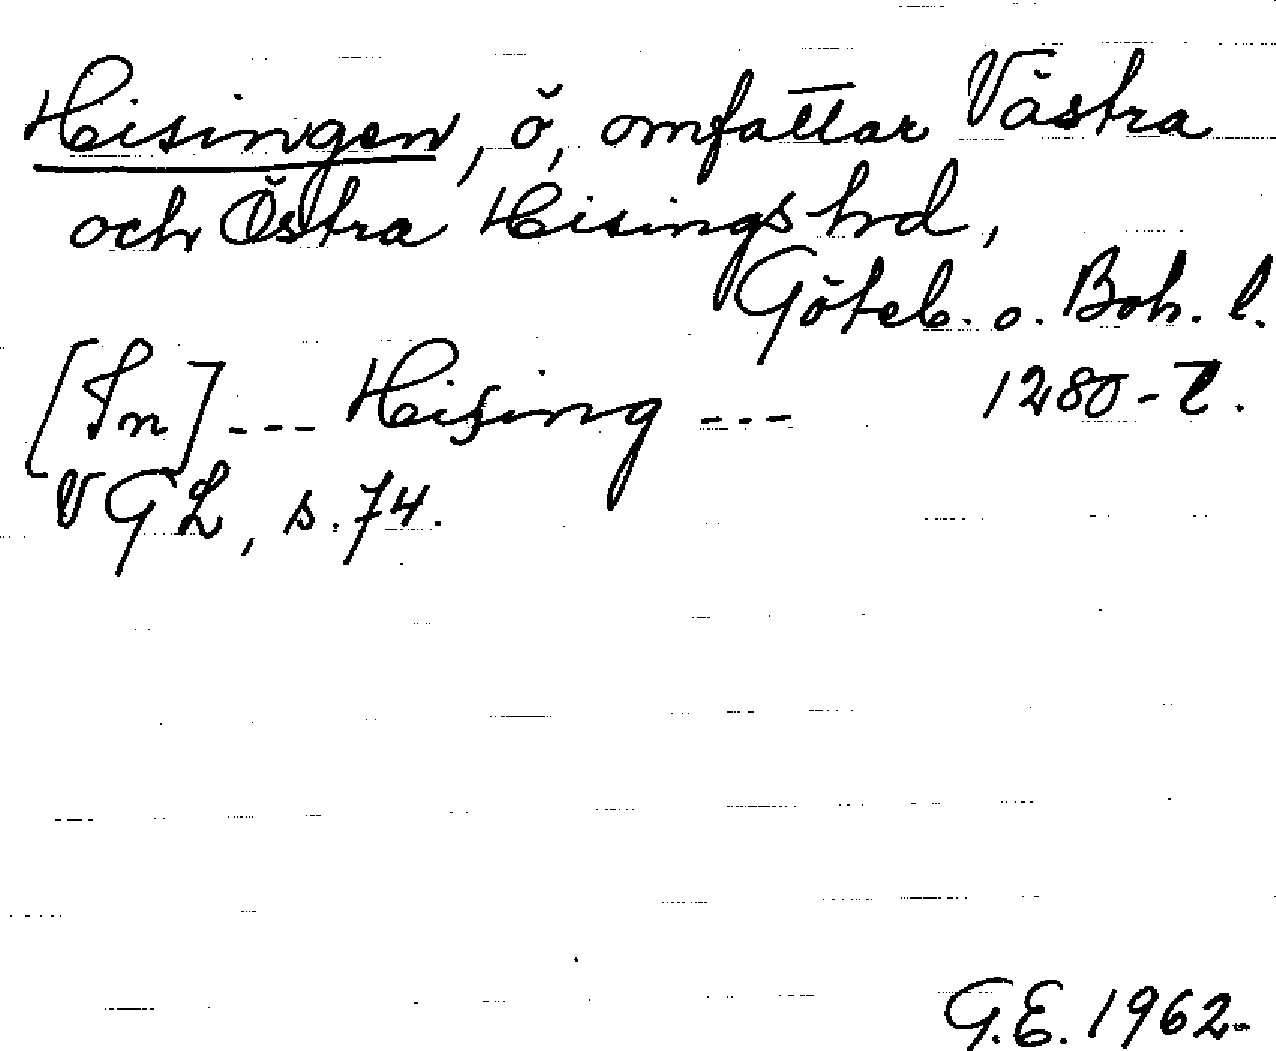 Hisingen, ö, omfattar Västra
och Östra Hisings hd,
Göteb. o. Boh. l.
[In] --- Hising --- 1280-t.
VGL, s. 74.
G.E. 1962.